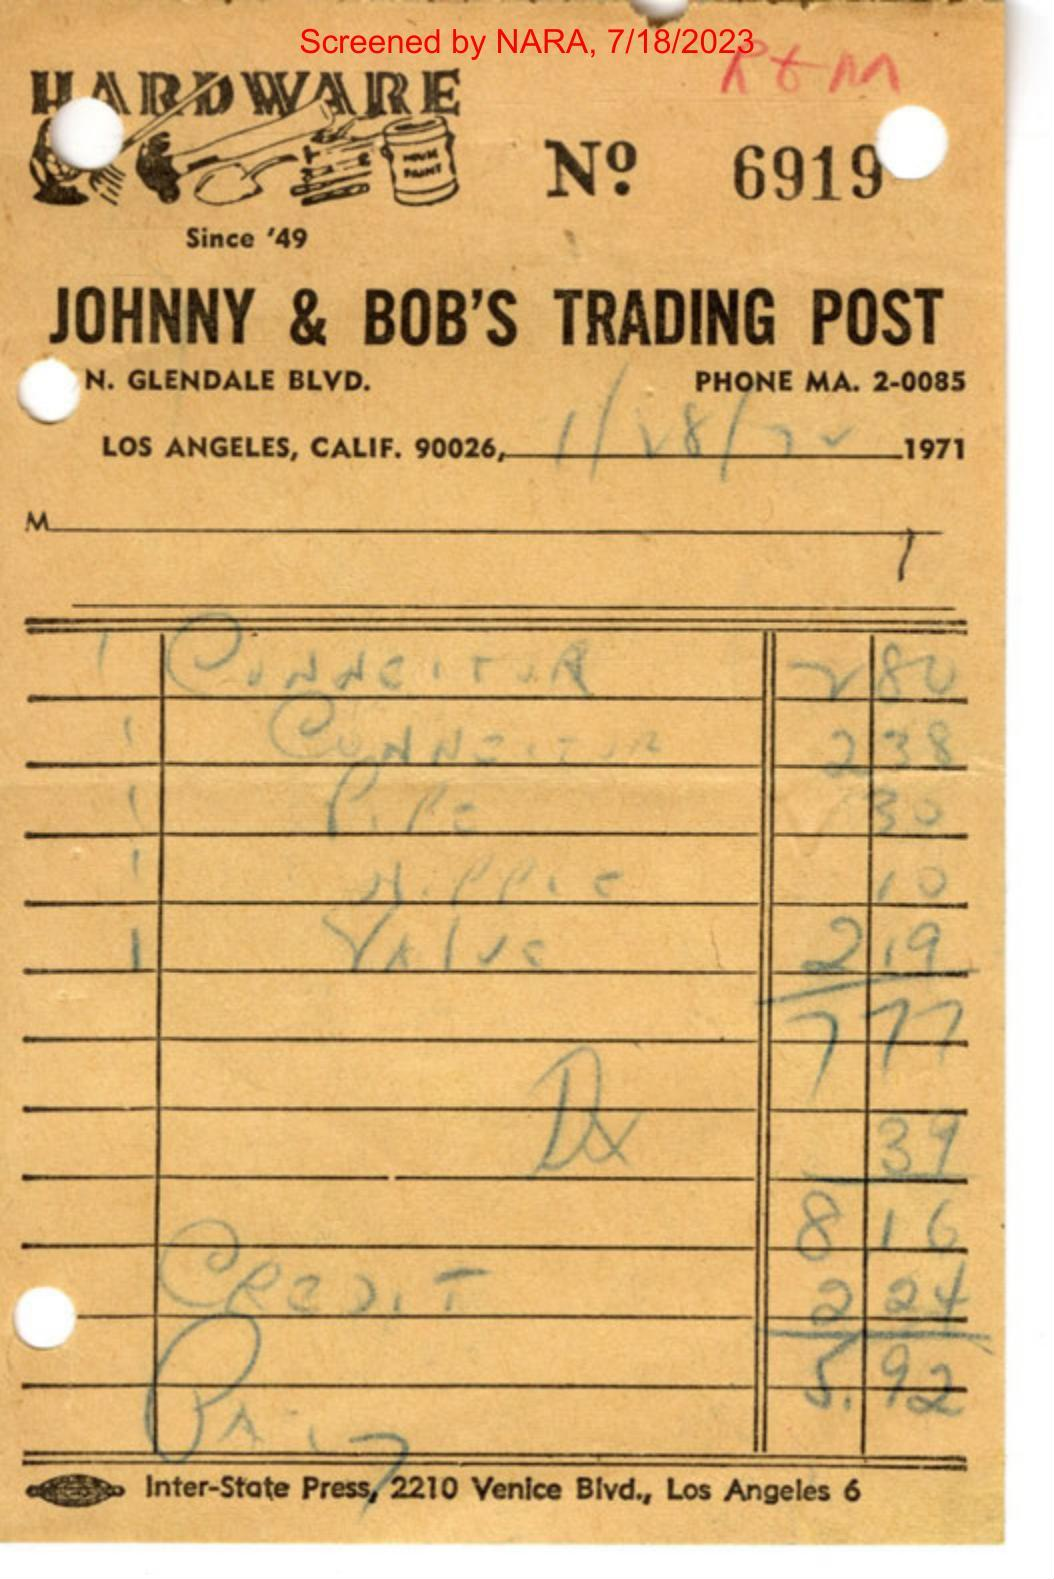 Screened by NARA, 7/18/2023
R & M
HARDWARE
HOUSE PAINT
Nº 6919
Since '49
JOHNNY & BOB'S TRADING POST
N. GLENDALE BLVD. PHONE MA. 2-0085
LOS ANGELES, CALIF. 90026, 1/28/72 1971
M
1
1 Connector 2 80
1 Connector 2 38
1 Pipe 30
1 Nipple 10
1 Valve 2 19
7 77
39
8 16
Credit 2 24
5.92
Paid
Inter-State Press, 2210 Venice Blvd., Los Angeles 6